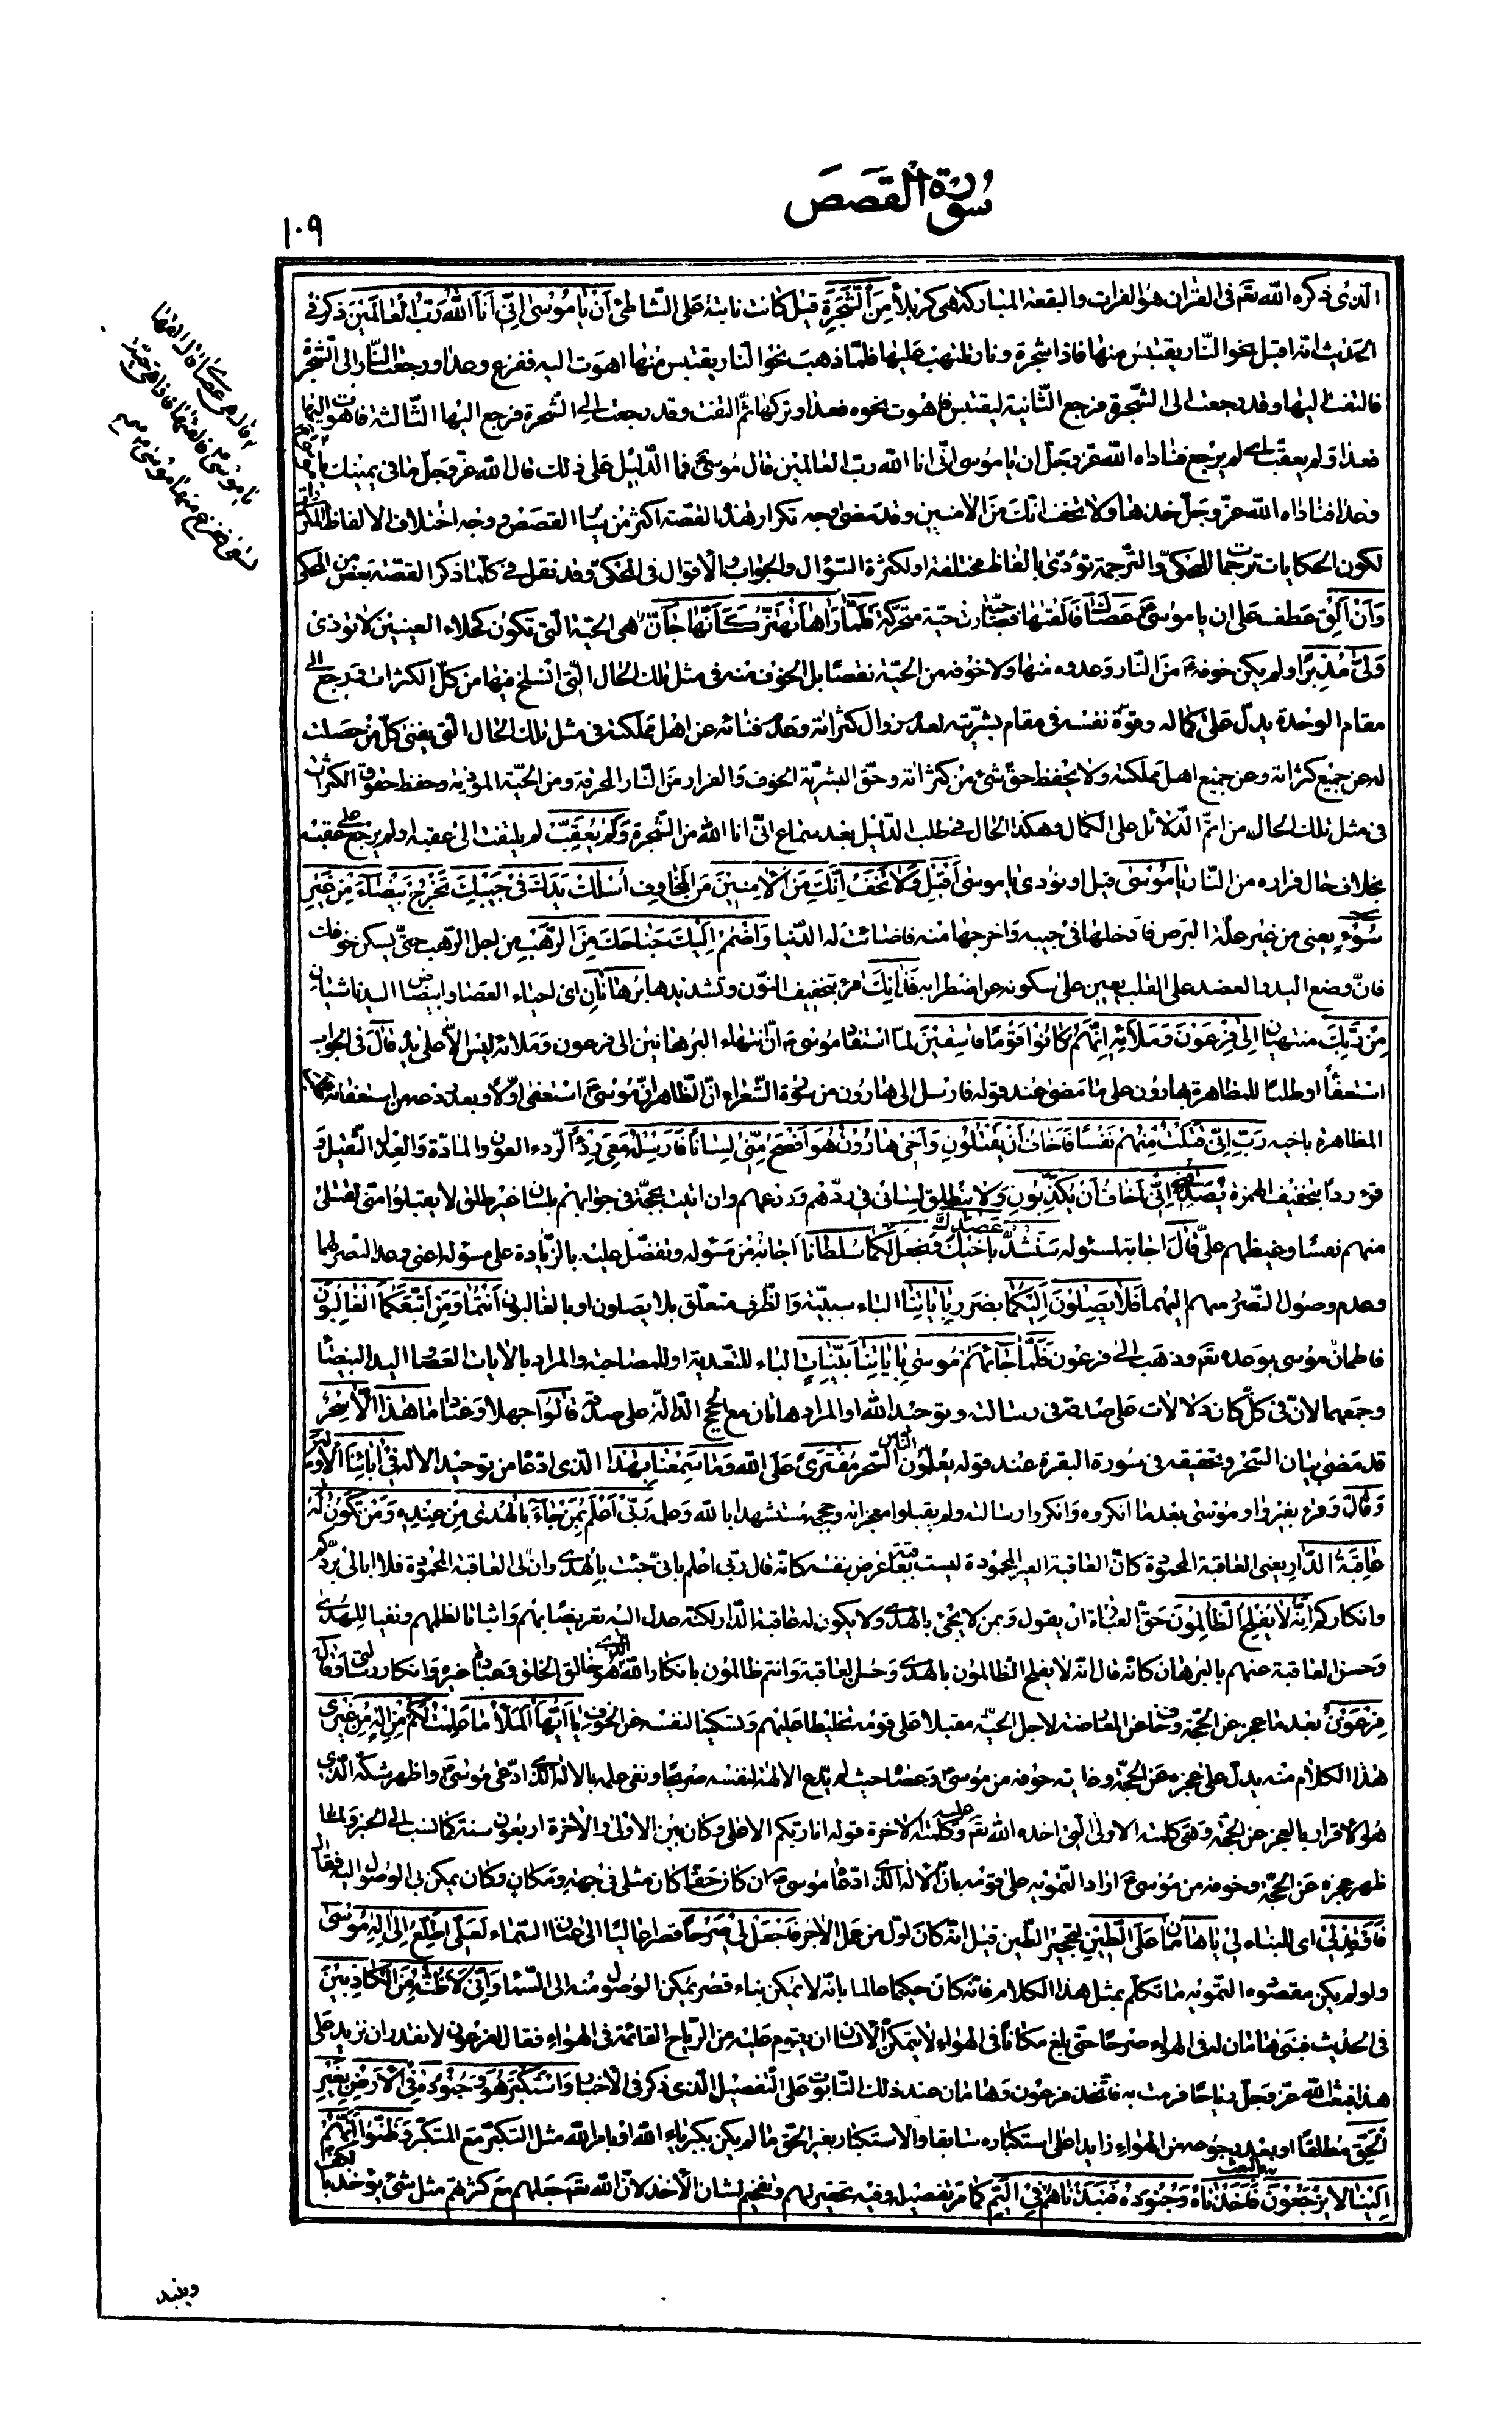 سورة القصص
١٠٩
الّذى ذكره الله تعم فى القران هو الفرات والبقعة المباركة هى كربلا مِنَ الشَّجَرَةِ قيل كانت نابتة على الشّاطئ أَنْ يا مُوسى اِنّى اَنَا اللهُ رَبُّ الْعالَمينَ ذكر فى
الحديث انّه اقبل نحو النّار يقتبس منها فاذا شجرة ونار تلتهب عليها فلمّا ذهب نحو النّار يقتبس منها اهوت اليه ففزع وعدا ورجعت النّار الى الشّجرة
فالتفت اليها وقد رجعت الى الشّجرة فرجع الثّانية ليقتبس فاهوت نحوه فعدا وتركها ثمّ التفت وقد رجعت الى الشّجرة فرجع اليها الثّالثة فاهوت اليها
فعدا ولم يعقّب اى لم يرجع فناداه الله عزّ وجلّ ان يا موسى انّى انا الله ربّ العالمين قال موسى فما الدّليل على ذلك قال الله عزّ وجلّ ما فى يمينك يا موسى
قال هى عصاى قال القها
يا موسى فالقيها فاذا هى حيّة
تسعى ففزع منها موسى
وعدا فناداه الله عزّ وجلّ خذها ولا تخف انّك من الامنين وقد مضى وجه تكرار هذه القصّة اكثر من سائر القصص ووجه اختلاف الالفاظ المكرّرة
لكون الحكايات ترجمات للمحكىّ والتّرجمة تؤدّى بالفاظ مختلفة او لكثرة السّؤال والجواب والاقوال فى المحكىّ وقد نقل فى كلّما ذكر القصّة بعض من المحكى
وَاَنْ اَلْقِ عطف على ان يا موسى عَصاكَ فالقيها فصارت حيّة متحرّكة فَلَمّا رَاها تَهْتَزُّ كَاَنَّها جانٌّ هى الحيّة الّتى تكون كحلاء العينين لا تؤذى
وَلّى مُدْبِرًا ولم يكن خوفه من النّار وعدوه منها ولا خوفه من الحيّة نقصًا بل الخوف منه فى مثل تلك الحال الّتى انسلخ فيها من كلّ الكثرات ورجع الى
مقام الوحدة يدلّ على كماله وقوّة نفسه فى مقام بشريّته لعدم زوال كثراته وعدم فنائه عن اهل مملكته فى مثل تلك الحال الّتى يفنى كلّ من حصلت
له عن جميع كثراته وعن جميع اهل مملكته ولا يحفظ حقّ شئ من كثراته وحقّ البشريّة الخوف والفرار من النّار المحرقة ومن الحيّة الموذية وحفظ حقوق الكثرات
فى مثل تلك الحال من اتمّ الدّلائل على الكمال وهكذا الحال فى طلب الدّليل بعد سماع انّى انا الله من الشّجرة وَلَمْ يُعَقِّبْ لم يلتفت الى عقبه او لم يرجع على عقبه
بخلاف حال فراره من النّار يا مُوسى قيل او نودى يا موسى اَقْبِلْ وَلا تَخَفْ اِنَّكَ مِنَ الْامِنينَ من المخاوف اُسْلُكْ يَدَكَ فى جَيْبِكَ تَخْرُجْ بَيْضاءَ مِنْ غَيْرِ
سُوءٍ يعنى من غير علّة البرص فادخلها فى جيبه واخرجها منه فاضائت له الدّنيا وَاضْمُمْ اِلَيْكَ جَناحَكَ مِنَ الرَّهْبِ من اجل الرّهب حتّى يسكن خوفك
فانّ وضع اليد والعضد على القلب يعين على سكونه عن اضطرابه فَذانِكَ قرء بتخفيف النّون وتشديدها بُرْهانانِ اى احياء العصا وابيضاض اليد ناشيان
مِنْ رَبِّكَ منتهيان اِلى فِرْعَوْنَ وَمَلَائِه اِنَّهُمْ كانُوا قَوْمًا فاسِقينَ لمّا استفاد موسى انّ انتهاء البرهانين الى فرعون وملائه ليس الّا على يده قالَ فى الجواب
استعفاءً او طلبًا للمظاهرة بهارون على ما مضى عند قوله فارسل الى هارون من سورة الشّعراء انّ الظّاهر انّ موسى استعفى اوّلًا وبعد ردعه من استعفائه
المظاهرة باخيه رَبِّ اِنّى قَتَلْتُ مِنْهُمْ نَفْسًا فَاَخافُ اَنْ يَقْتُلُونِ وَاَخى هارُونُ هُوَ اَفْصَحُ مِنّى لِسانًا فَاَرْسِلْهُ مَعِىَ رِدْءًا الرّدء العون والمادّة والعدل الثّقيل و
قرء ردًا بتخفيف الهمزة يُصَدِّقُنى اِنّى اَخافُ اَنْ يُكَذِّبُونِ ولا ينطلق لسانى فى ردّهم وردعهم وان اتيت بحجّة فى جوابهم بلسان غير طلق لا يقبلوا منّى لقتلى
منهم نفسًا وغيظهم علىّ قالَ اجابة لمسئوله سَنَشُدُّ عَضُدَكَ بِاَخيكَ وَنَجْعَلُ لَكُما سُلْطانًا اجابه من مسئوله وتفضّل عليه بالزّيادة على مسئوله اعنى وعد النّصر لهما
وعدم وصول الضّرّ منهم اليهما فَلا يَصِلُونَ اِلَيْكُما بضرر بِاياتِنا الباء سببيّة والظّرف متعلّق بلا يصلون او بالغالبون اَنْتُما وَمَنِ اتَّبَعَكُمَا الْغالِبُونَ
فاطمانّ موسى بوعده تعم وذهب الى فرعون فَلَمّا جاءَهُمْ مُوسى بِاياتِنا بَيِّناتٍ الباء للتّعدية او للمصاحبة والمراد بالايات العصا واليد البيضاء
وجمعهما لانّ فى كلّ كان دلالات على صدقه فى رسالته وتوحيد الله او المراد هاتان مع الحجج الدّالّة على صدقه قالُوا جهلًا وعنادًا ما هذا اِلّا سِحْرٌ
قد مضى بيان السّحر وتحقيقه فى سورة البقرة عند قوله يعلّمون النّاس السّحر مُفْتَرًى على الله وَما سَمِعْنا بِهذا الّذى ادّعا من توحيد الاله فى ابائِنَا الْاَوَّلينَ
وَقالَ وقرء بغير واو مُوسى بعد ما انكروه وانكروا رسالته ولم يقبلوا معجزاته وحججه مستشهدًا بالله وعلمه رَبّى اَعْلَمُ بِمَنْ جاءَ بِالْهُدى مِنْ عِنْدِه وَمَنْ تَكُونُ لَهُ
عاقِبَةُ الدّارِ يعنى العاقبة المحمودة كانّ العاقبة الغير المحمودة ليست بعاقبة عرض بنفسه كانّه قال ربّى اعلم بانّى جئت بالهدى وانّ لى العاقبة المحمودة فلا ابالى بردّكم
وانكاركم اِنَّهُ لا يُفْلِحُ الظّالِمُونَ حقّ العبارة ان يقول وبمن لا يجئ بالهدى ولا يكون له عاقبة الدّار لكنّه عدل اليه تعريضًا بهم واثباتا لظلمهم ونفيا للهدى
وحسن العاقبة عنهم بالبرهان كانّه قال انّه لا يفلح الظّالمون بالهدى وحسن العاقبة وانتم ظالمون بانكار الله الّذى هو خالق الخلق وعبادة غيره وانكار رسالتى وَقالَ
فِرْعَوْنُ بعد ما عجز عن الحجّة وخاف عن المعارضة لاجل الحيّة مقبلًا على قومه تخليطا عليهم وتسكينا لنفسه عن الخوف يا اَيُّهَا الْمَلَأُ ما عَلِمْتُ لَكُمْ مِنْ اِلهٍ غَيْرى
هذا الكلام منه يدلّ على عجزه عن الحجّة وغاية خوفه من موسى وعصاه حيث لم يدّع الالهة لنفسه صريحًا ونفى علمه بالاله الّذى ادّعى موسى واظهر شكّه الّذى
هو الاقرار بالعجز عن الحجّة وهى كلمته الاولى الّتى اخذه الله تعم عليه وكلمته الاخرة قوله انا ربّكم الاعلى وكان بين الاولى والاخرة اربعون سنة كما نسب الى الخبر ولمّا
ظهر عجزه عن الحجّة وخوفه من موسى اراد التّمويه على قومه بانّ الاله الّذى ادّعاه موسى ان كان حقًّا كان مثلى فى جهة ومكان وكان يمكن لى الوصول اليه فقال
فَاَوْقِدْ لى اى للبناء لى يا هامانُ عَلَى الطّينِ لتحجير الطّين قيل انّه كان اوّل من عمل الاجر فَاجْعَلْ لى صَرْحًا قصرا عاليًا الى عنان السّماء لَعَلّى اَطَّلِعُ اِلى اِلهِ مُوسى
ولو لم يكن مقصوده التّمويه ما تكلّم بمثل هذا الكلام فانّه كان حكيما عالما بانّه لا يمكن بناء قصر يمكن الوصول منه الى السّماء وَاِنّى لَاَظُنُّهُ مِنَ الْكاذِبينَ
فى الحديث فبنى هامان له فى الهواء صرحًا حتّى بلغ مكانًا فى الهواء لا يتمكّن الانسان ان يقوم عليه من الرّياح القائمة فى الهواء فقال لفرعون لا نقدر ان نزيد على
هذا فبعث الله عزّ وجلّ رياحًا فرمت به فاتّخذ فرعون وهامان عند ذلك التّابوت على التّفصيل الّذى ذكر فى الاخبار وَاسْتَكْبَرَ هُوَ وَجُنُودُهُ فِى الْاَرْضِ بِغَيْرِ
الْحَقِّ مطلقًا او بعد رجوعه من الهواء زايد اعلى استكباره سابقا والاستكبار بغير الحقّ ما لم يكن بكبرياء الله او بامر الله مثل التّكبّر مع المتكبّر وَظَنُّوا اَنَّهُمْ
اِلَيْنا لا يُرْجَعُونَ فَاَخَذْناهُ وَجُنُودَهُ فَنَبَذْناهُمْ فِى الْيَمِّ كما مرّ تفصيله وفيه تحقير لهم وتفخيم لشان الاخذ لانّ الله تعم جعلهم مع كثرتهم مثل شئ يؤخذ بالكفّ
وينبذ